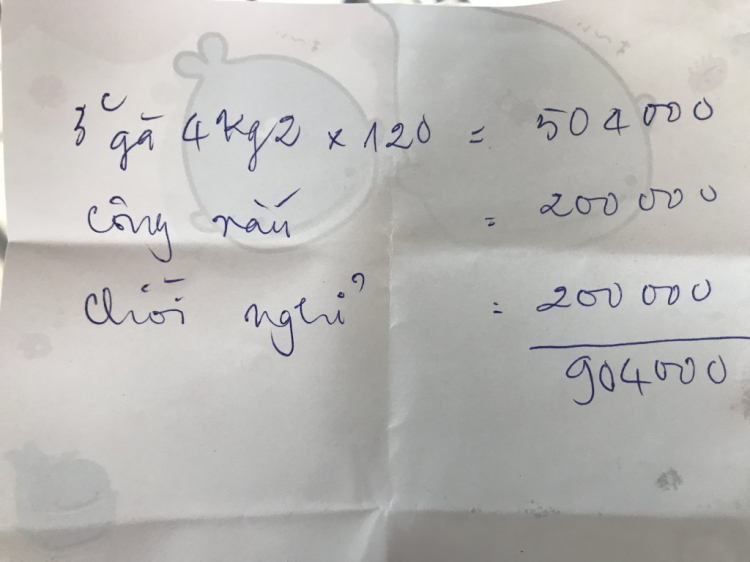 3c gà 4kg2 x 120 = 504000
công nấu = 200 000
chỗ nghỉ = 200 000
904000